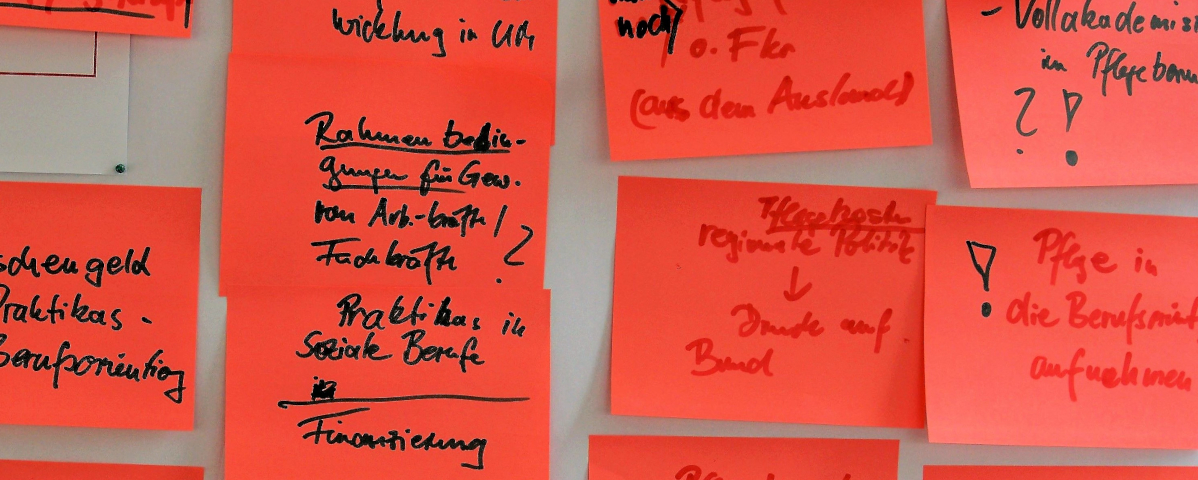 wicklung in
noch
o. Fkr
(aus dem Ausland)
- Vollakademisi
im Pflegeberu
? !
schengeld
Praktikas -
Berufsorientierg
Rahmenbedin-
gungen für Gew.
von Arb.-kräfte /
Fachkräfte ?
Praktikas in
Soziale Berufe
Finanzierung
regionale Politik
↓
Druck auf
Bund
! Pflege in
die Berufsorient
aufnehmen